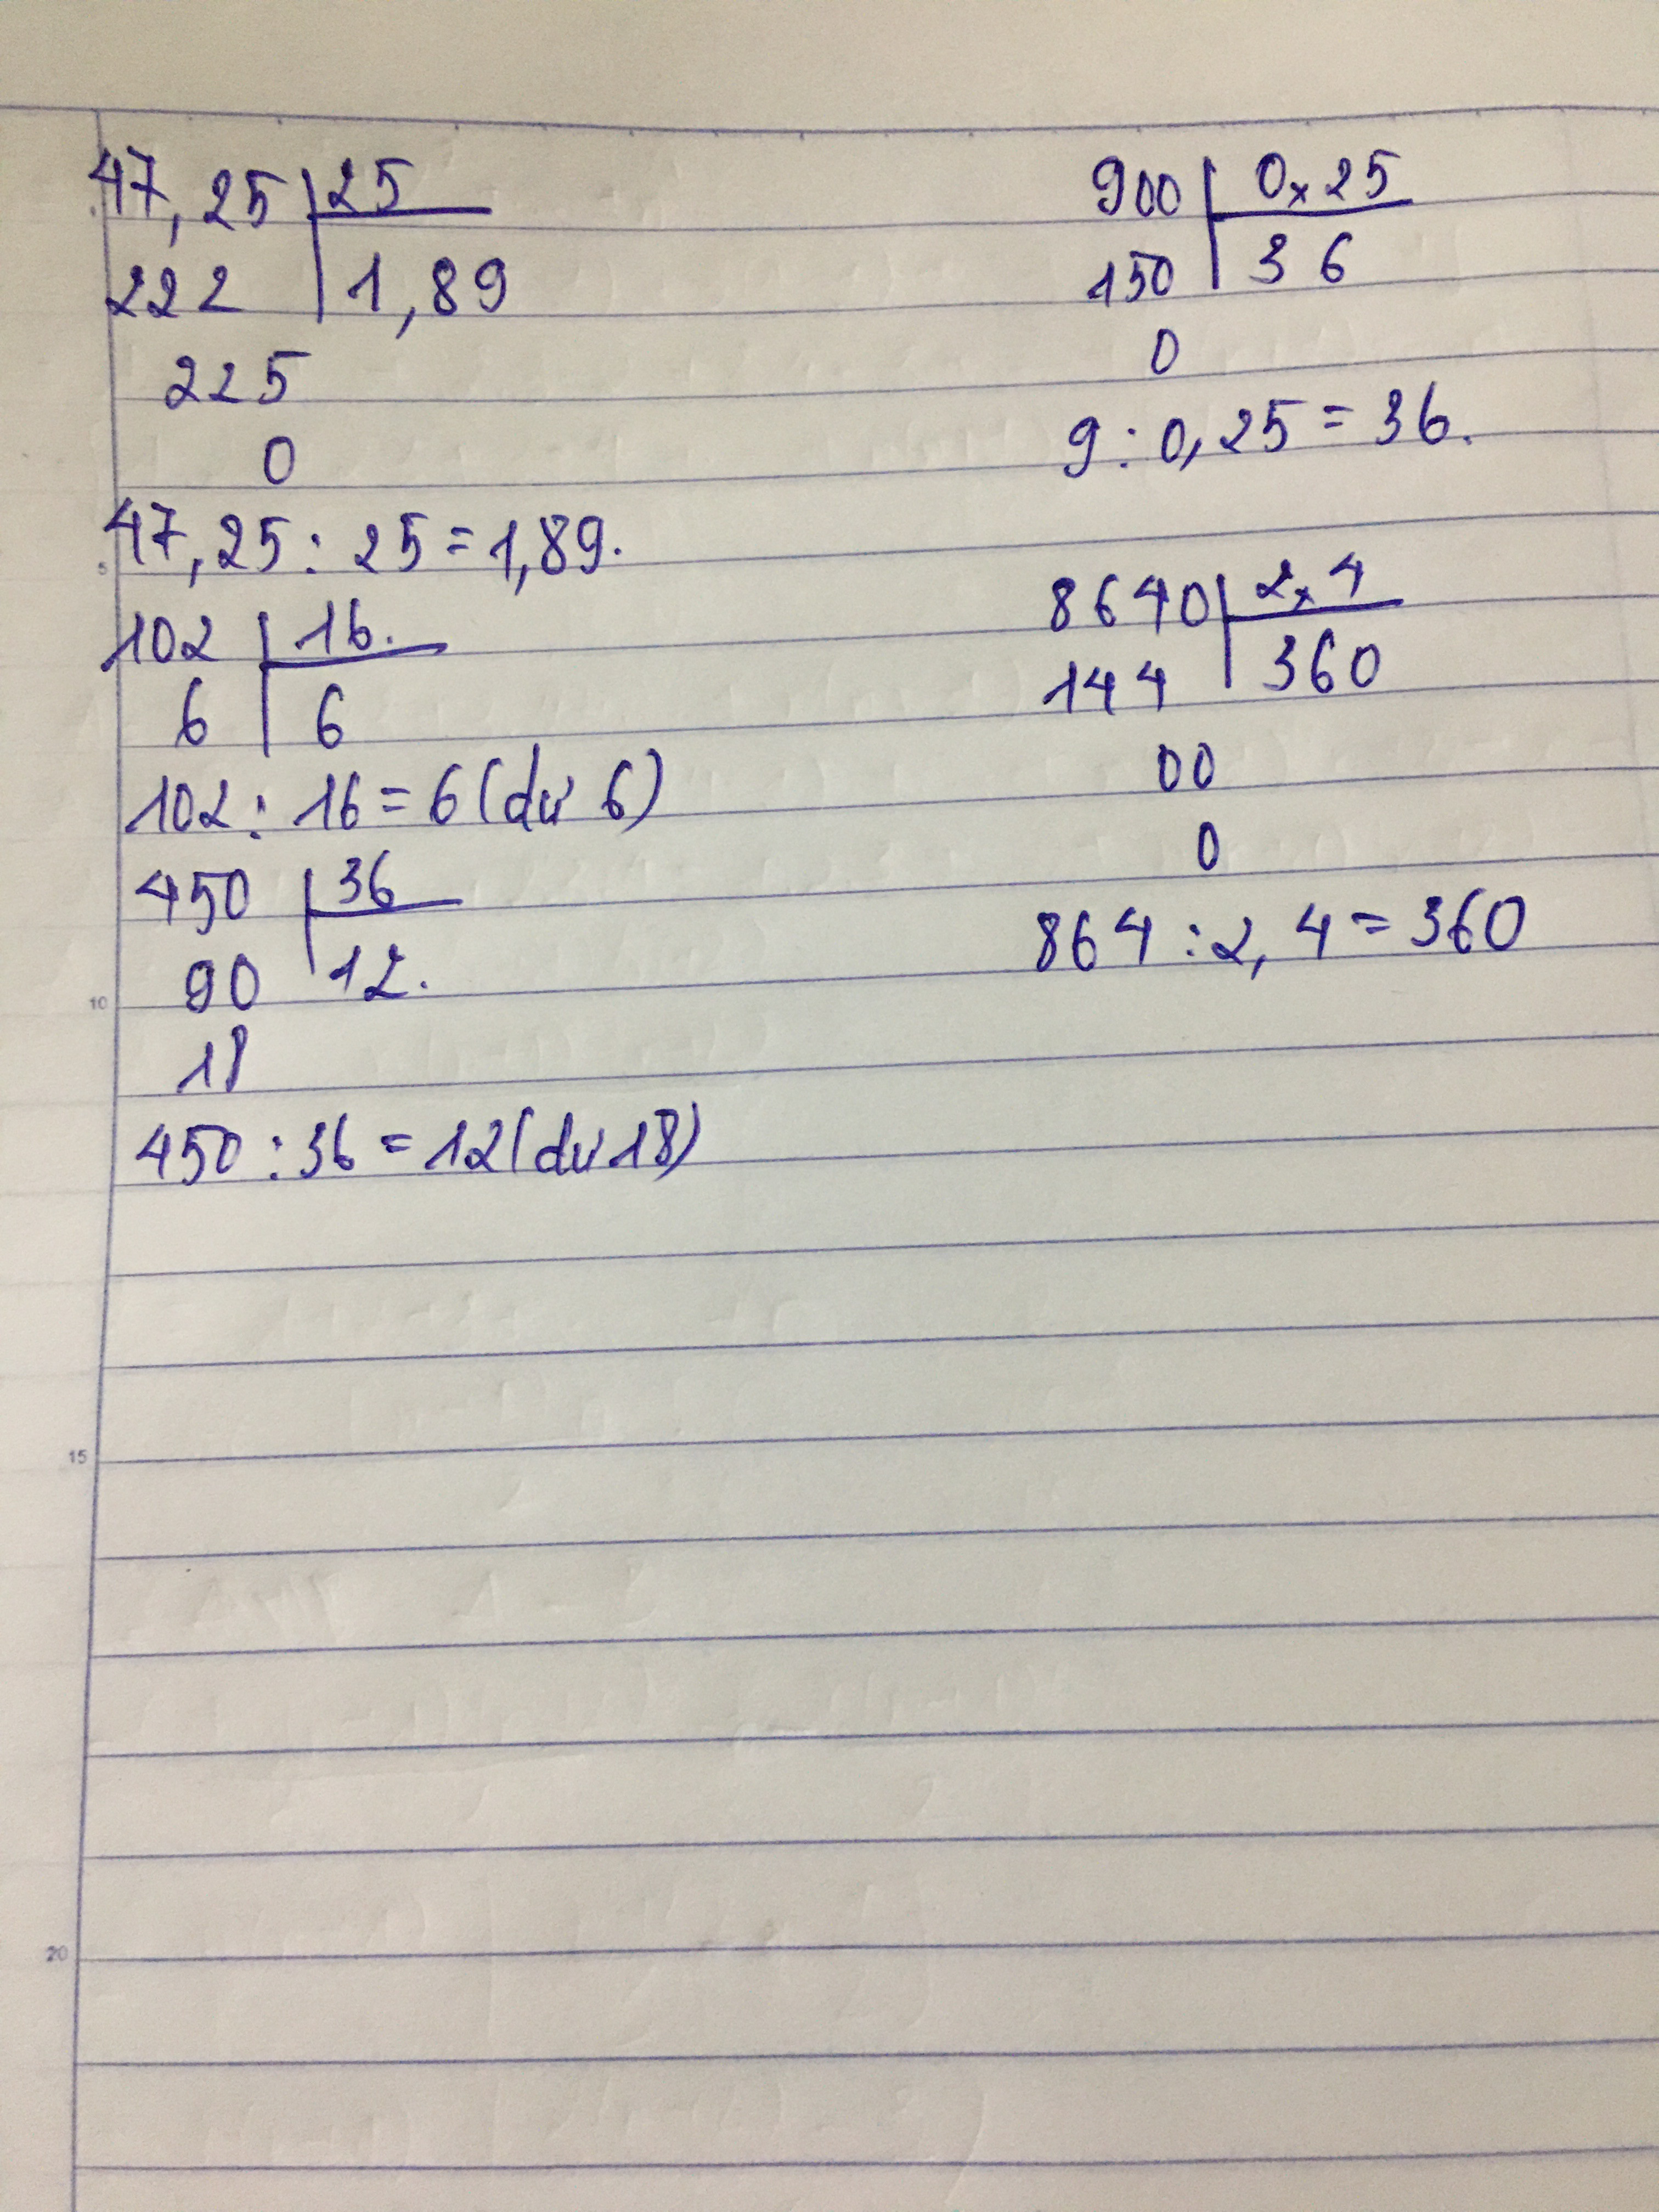 47,25 | 25
222 | 1,89
225
0
47,25 : 25 = 1,89.
102 | 16.
6 | 6
102 : 16 = 6 (dư 6)
450 | 36
90 | 12.
18
450 : 36 = 12 (dư 18)
900 | 0,25
150 | 36
0
9 : 0,25 = 36.
8640 | 2,4
144 | 360
00
0
864 : 2,4 = 360
5
10
15
20